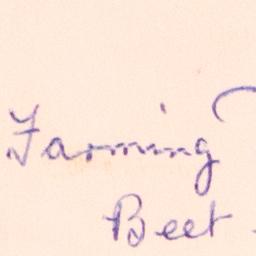 Farming
Beet